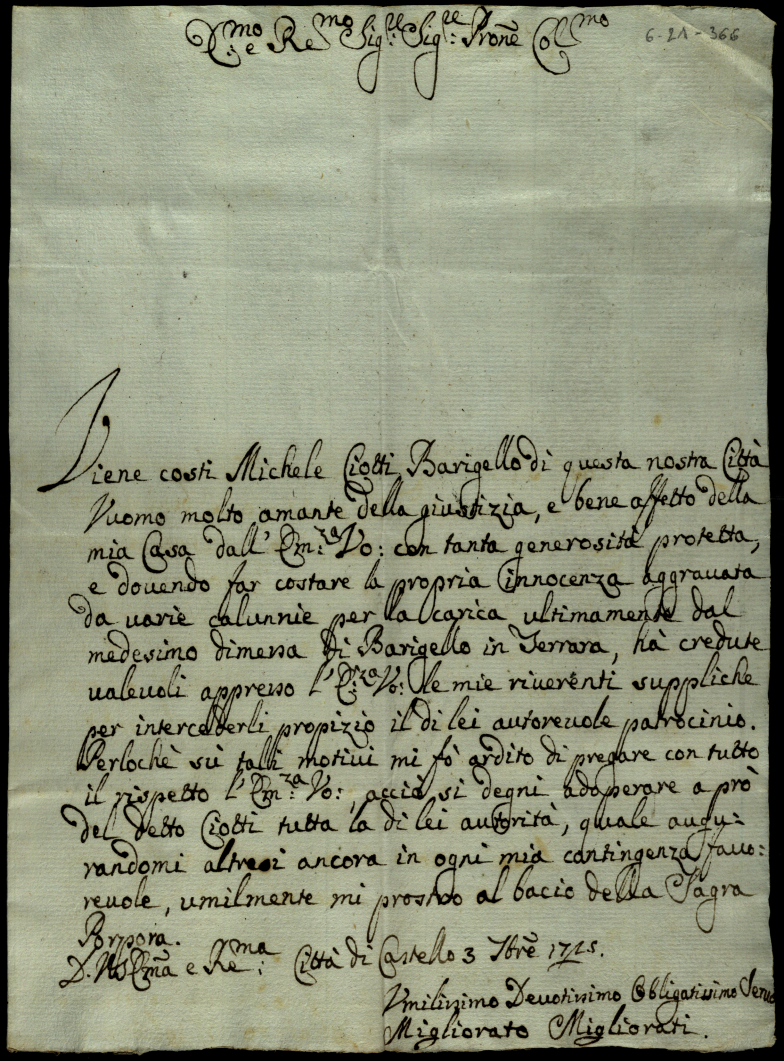 E:mo e Re:mo Sig:re Sig:re Prone Col:mo
6-21-366
Viene costi Michele Ciotti Barigello di questa nostra Città
Vuomo molto amante della giustizia, e bene affetto della
mia Casa dall' Em:za Vo: con tanta generosità protetta,
e douendo far costare la propria Innocenza aggrauata
da uarie calunnie per la carica ultimamente dal
medesimo dimessa di Barigello in Ferrara, hà credute
ualeuoli appresso l' E:za Vo: le mie riuerenti suppliche
per intercederli propizio il di lei autoreuole patrocinio.
Perlochè sù talli motiui mi fò ardito di pregare con tutto
il rispetto l' Em:za Vo:, acciò si degni adoperare a prò
del detto Ciotti tutta la di lei autorità, quale augu:
randomi altresi ancora in ogni mia contingenza fauo:
reuole, umilmente mi prostro al bacio della Sagra
Porpora.
D. V. Em̃a e Re:ma Città di Castello 3 7bre 1725.
Vmilissimo Deuotissimo Obligatissimo Seruo
Migliorato Migliorati.